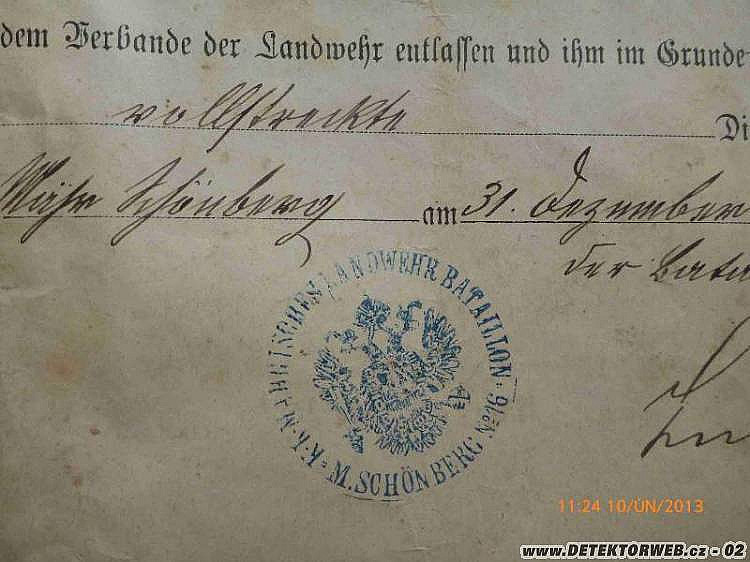 dem Verbande der Landwehr entlassen und ihm im Grunde
vollstreckte Di
Mähr Schönberg am 31. Dezember
der
K.K. MÄHRISCHEN LANDWEHR BATAILLON. No 16
M. SCHÖNBERG
11:24 10/ÚN/2013
www.DETEKTORWEB.cz - 02